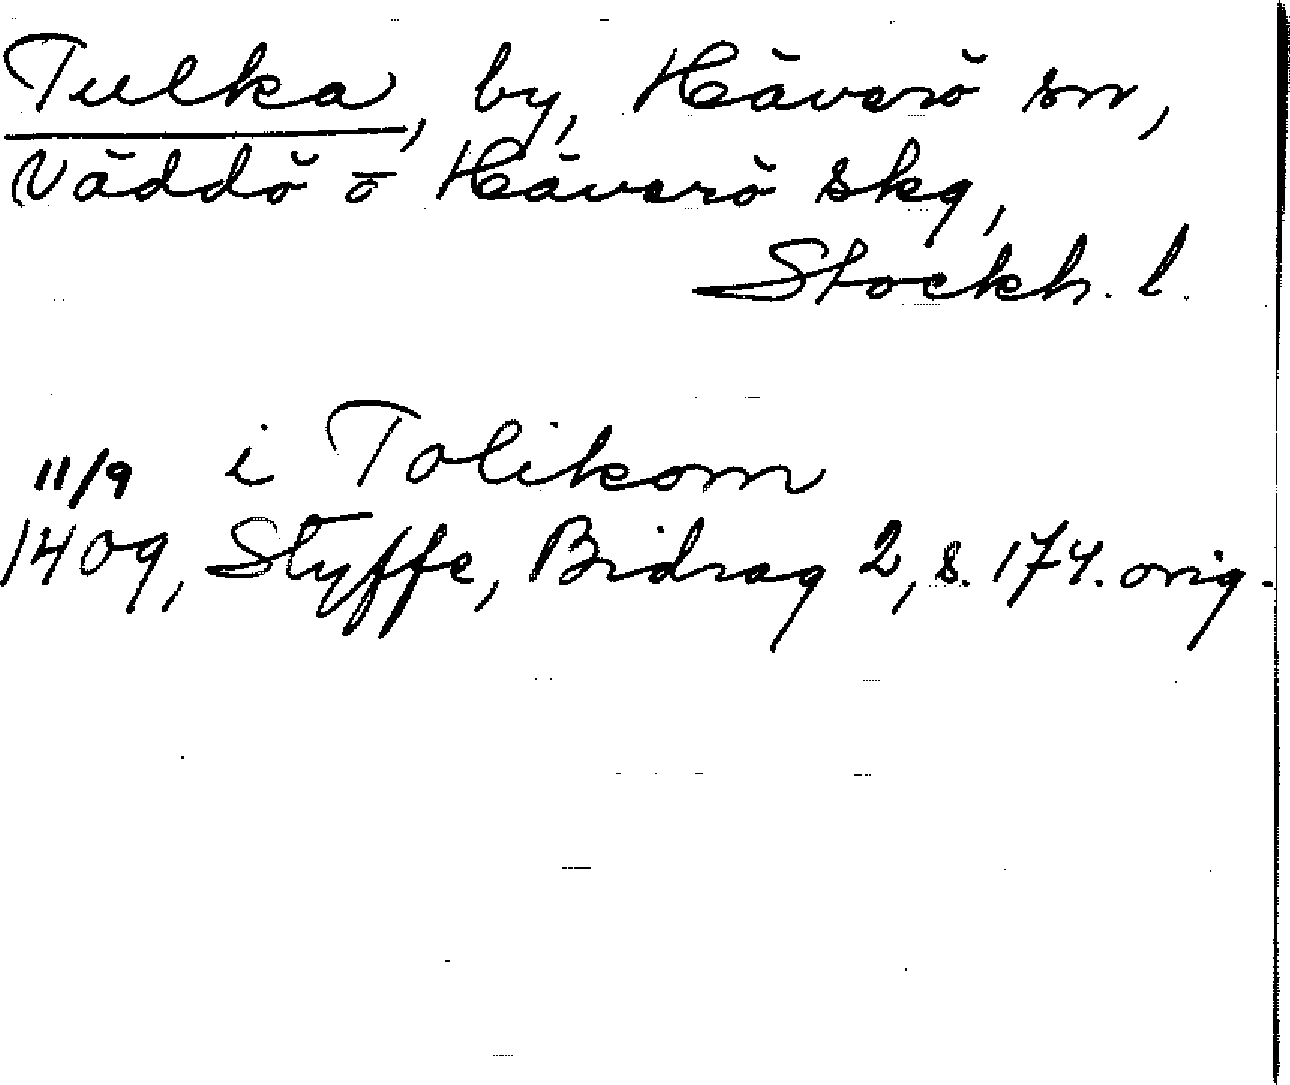 Tulka, by, Häverö sn,
Väddö o Häverö skg,
Stockh. l.
11/9 i Tolikom
1409, Styffe, Bidrag 2, s. 174. orig.